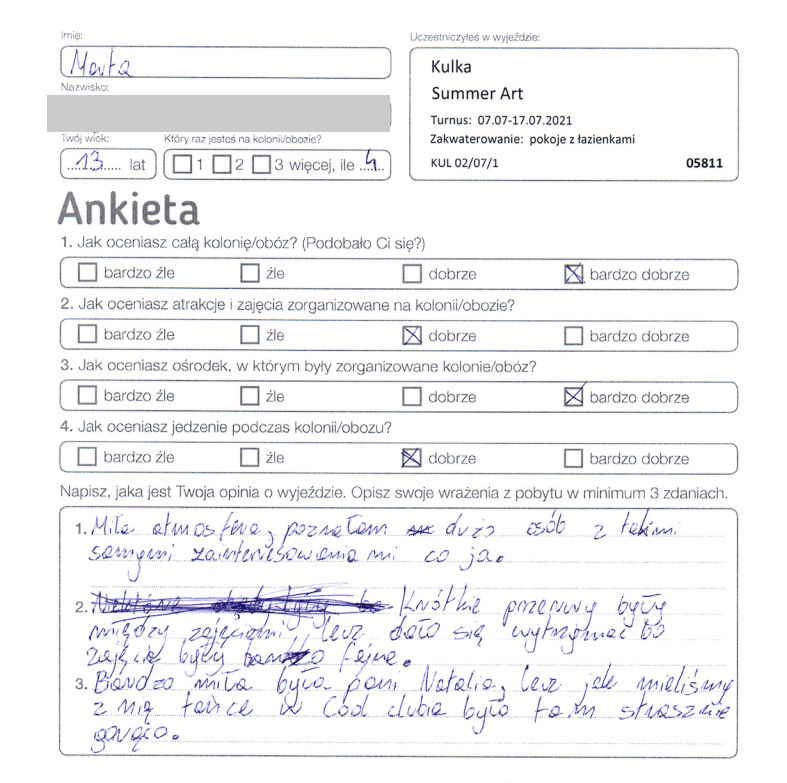 Imię:
Marta
Nazwisko:
Twój wiek:
13 lat
Który raz jesteś na kolonii/obozie?
1 2 3 więcej, ile 4
Uczestniczyłeś w wyjeździe:
Kulka
Summer Art
Turnus: 07.07-17.07.2021
Zakwaterowanie: pokoje z łazienkami
KUL 02/07/1 05811
Ankieta
1. Jak oceniasz całą kolonię/obóz? (Podobało Ci się?)
bardzo źle źle dobrze bardzo dobrze
2. Jak oceniasz atrakcje i zajęcia zorganizowane na kolonii/obozie?
bardzo źle źle dobrze bardzo dobrze
3. Jak oceniasz ośrodek, w którym były zorganizowane kolonie/obóz?
bardzo źle źle dobrze bardzo dobrze
4. Jak oceniasz jedzenie podczas kolonii/obozu?
bardzo źle źle dobrze bardzo dobrze
Napisz, jaka jest Twoja opinia o wyjeździe. Opisz swoje wrażenia z pobytu w minimum 3 zdaniach.
1. Miła atmosfera, poznałam dużo osób z takimi
samymi zainteresowaniami co ja.
2. Krótkie przerwy były
między zajęciami, lecz dało się wytrzymać bo
zajęcia były fajne.
3. Bardzo miła była pani Natalia, lecz jak mieliśmy
z nią tańce w Cod clubie było tam strasznie
gorąco.